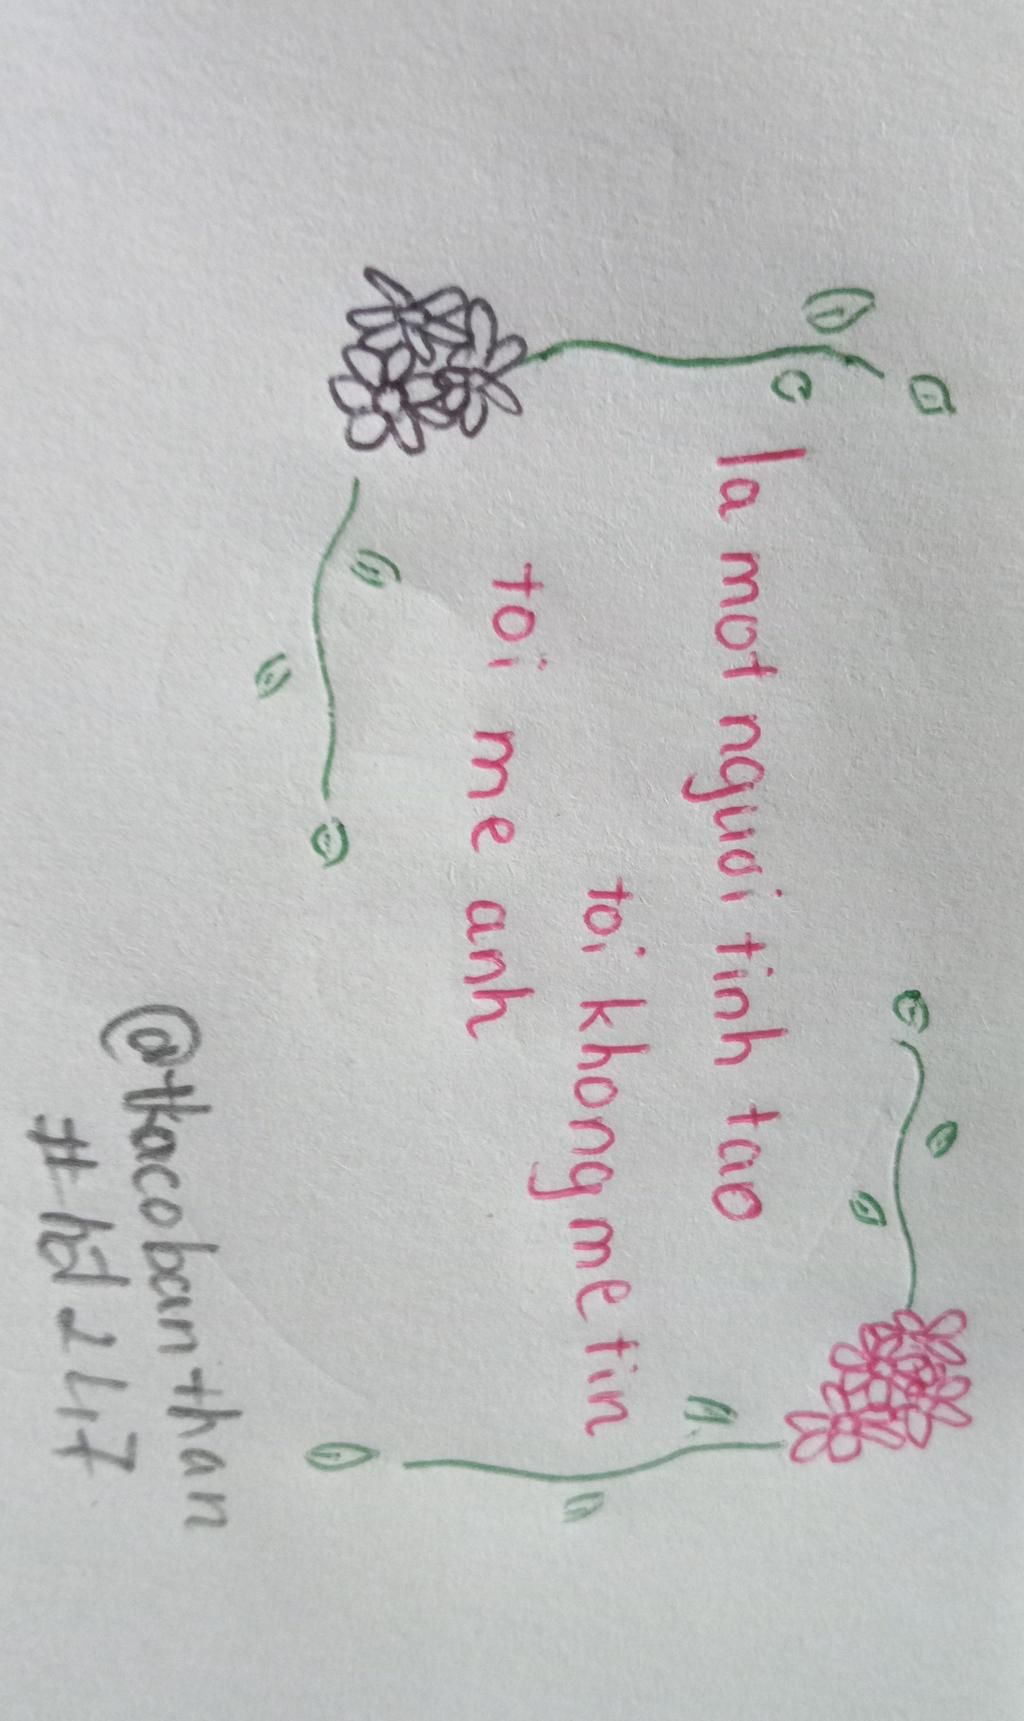 la mot nguoi tinh tao
toi khong me tin
toi me anh
@thacobanthan
#hd2417